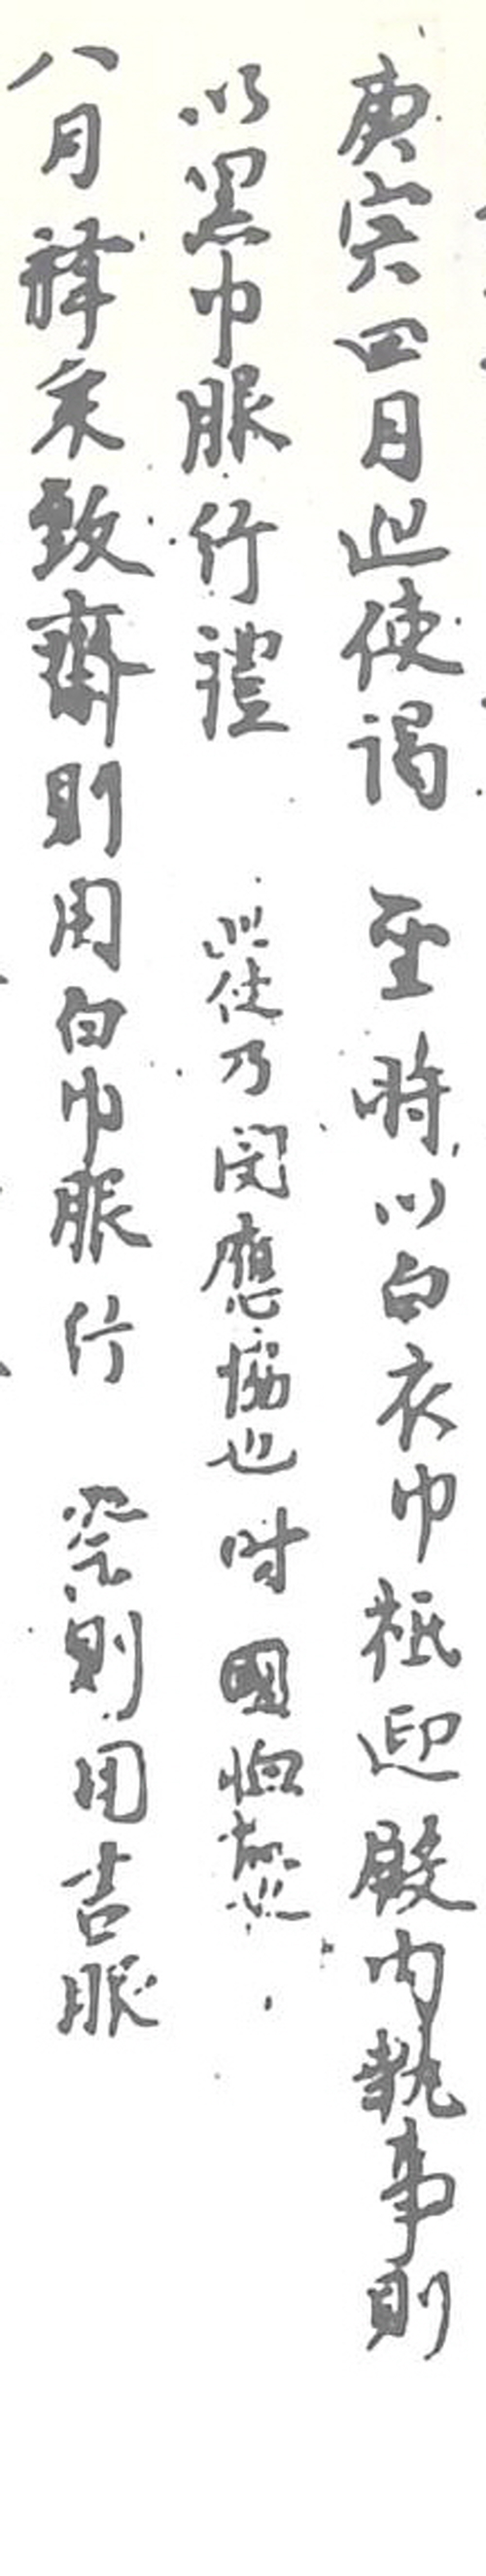 庚寅四月巡使謁 聖時以白衣巾祗迎殿內執事則
以黑巾服行禮 巡使乃閔應協也時國恤
八月釋菜致齋則用白巾服行 祭則用吉服